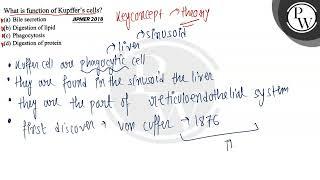 What is function of Kupffer's cells?
(a) Bile secretion JIPMER 2018
(b) Digestion of lipid
(c) Phagocytosis
(d) Digestion of protein
Key concept → theory
sinusoid
liver
• Kuffer cell are phagocytic cell
• they are found in the sinusoid the liver
• they are the part of reticuloendothelial system
• first discover → von cuffer → 1876
PW